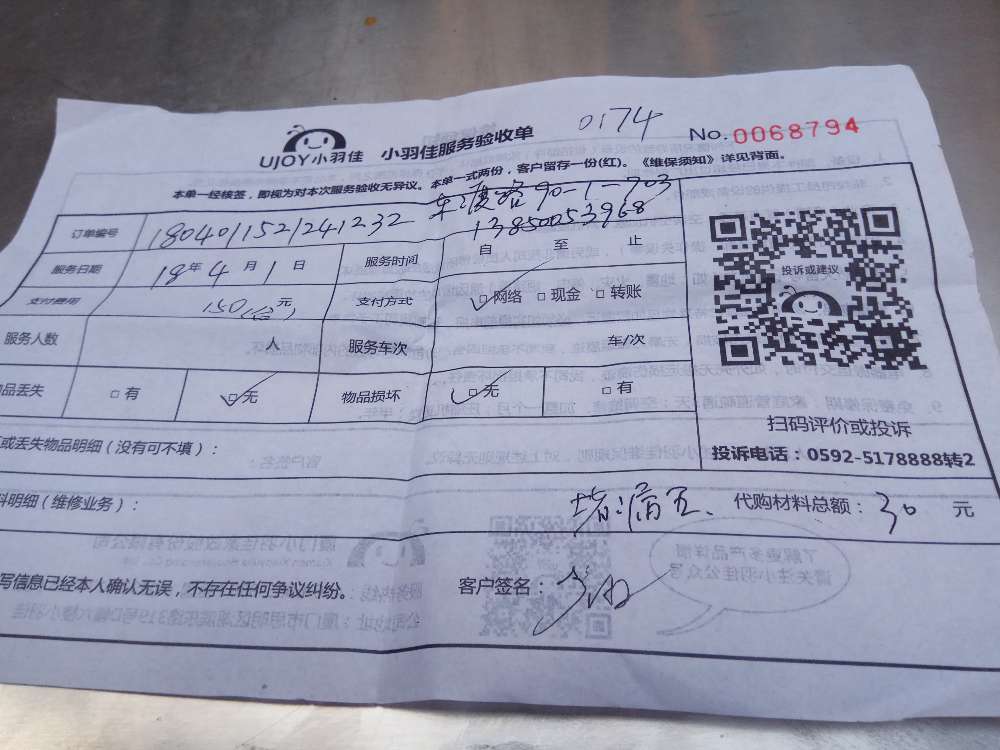 UJOY小羽佳 小羽佳服务验收单 0174 No.0068794
本单一经核签，即视为对本次服务验收无异议。本单一式两份，客户留存一份(红)。《维保须知》详见背面。
90-1-703
订单编号 1804011521241232 13850053968
服务日期 18年4月1日 服务时间 自 至 止
支付费用 150 元 支付方式 □网络 □现金 □转账
服务人数 人 服务车次 车/次
品丢失 □有 □无 物品损坏 □无 □有
投诉或建议
扫码评价或投诉
投诉电话：0592-5178888转2
或丢失物品明细（没有可不填）：
料明细（维修业务）： 堵漏王、 代购材料总额：30 元
写信息已经本人确认无误，不存在任何争议纠纷。 客户签名：